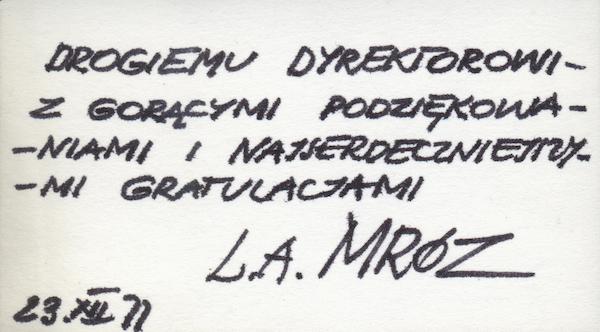 DROGIEMU DYREKTOROWI-
Z GORĄCYMI PODZIĘKOWA-
-NIAMI I NAJSERDECZNIEJSZY-
-MI GRATULACJAMI
L.A. MRÓZ
23.XII 71